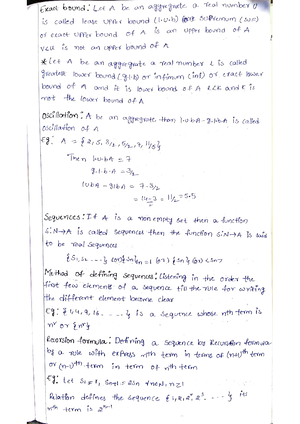 Exact bound: Let A be an aggregate a real number U
is called least upper bound (l.u.b) or Supremum (sup)
or exact upper bound of A is an upper bound of A
V<U is not an upper bound of A
* Let A be an aggregate a real number L is called
greatest lower bound (g.l.b) or infimum (inf) or exact lower
bound of A and it is lower bound of A L<K and K is
not the lower bound of A
Oscillation: A be an aggregate than l.u.bA - g.l.bA is called
oscillation of A
Eg: A = {2, 5, 3/2, 5/2, 7, 11/5}
Then l.u.bA = 7
g.l.b.A = 3/2
lubA - glbA = 7 - 3/2
= 14-3/2 = 11/2 = 5.5
Sequences: If A is a non empty set then a function
S:N→A is called sequences then the function S:N→A is said
to be real sequences
{S1, S2 .....} (or) {Sn}∞n=1 (or) {Sn} (or) <Sn>
Method of defining sequences: Listening in the order the
first few elements of a sequence till the rule for writing
the different element become clear
Eg: {1, 4, 9, 16, ....} is a sequence whose nth term is
n² or {n²}
Recursion formula: Defining a sequence by Recursion formula
by a rule with express nth term in terms of (n+1)th term
or (n-1)th term in term of nth term
Eg: Let S1=1, Sn+1=2Sn ∀n∈N, n≥1
Relation defines the sequence {1, 2, 2², 2³ ....} its
nth term is 2ⁿ⁻¹